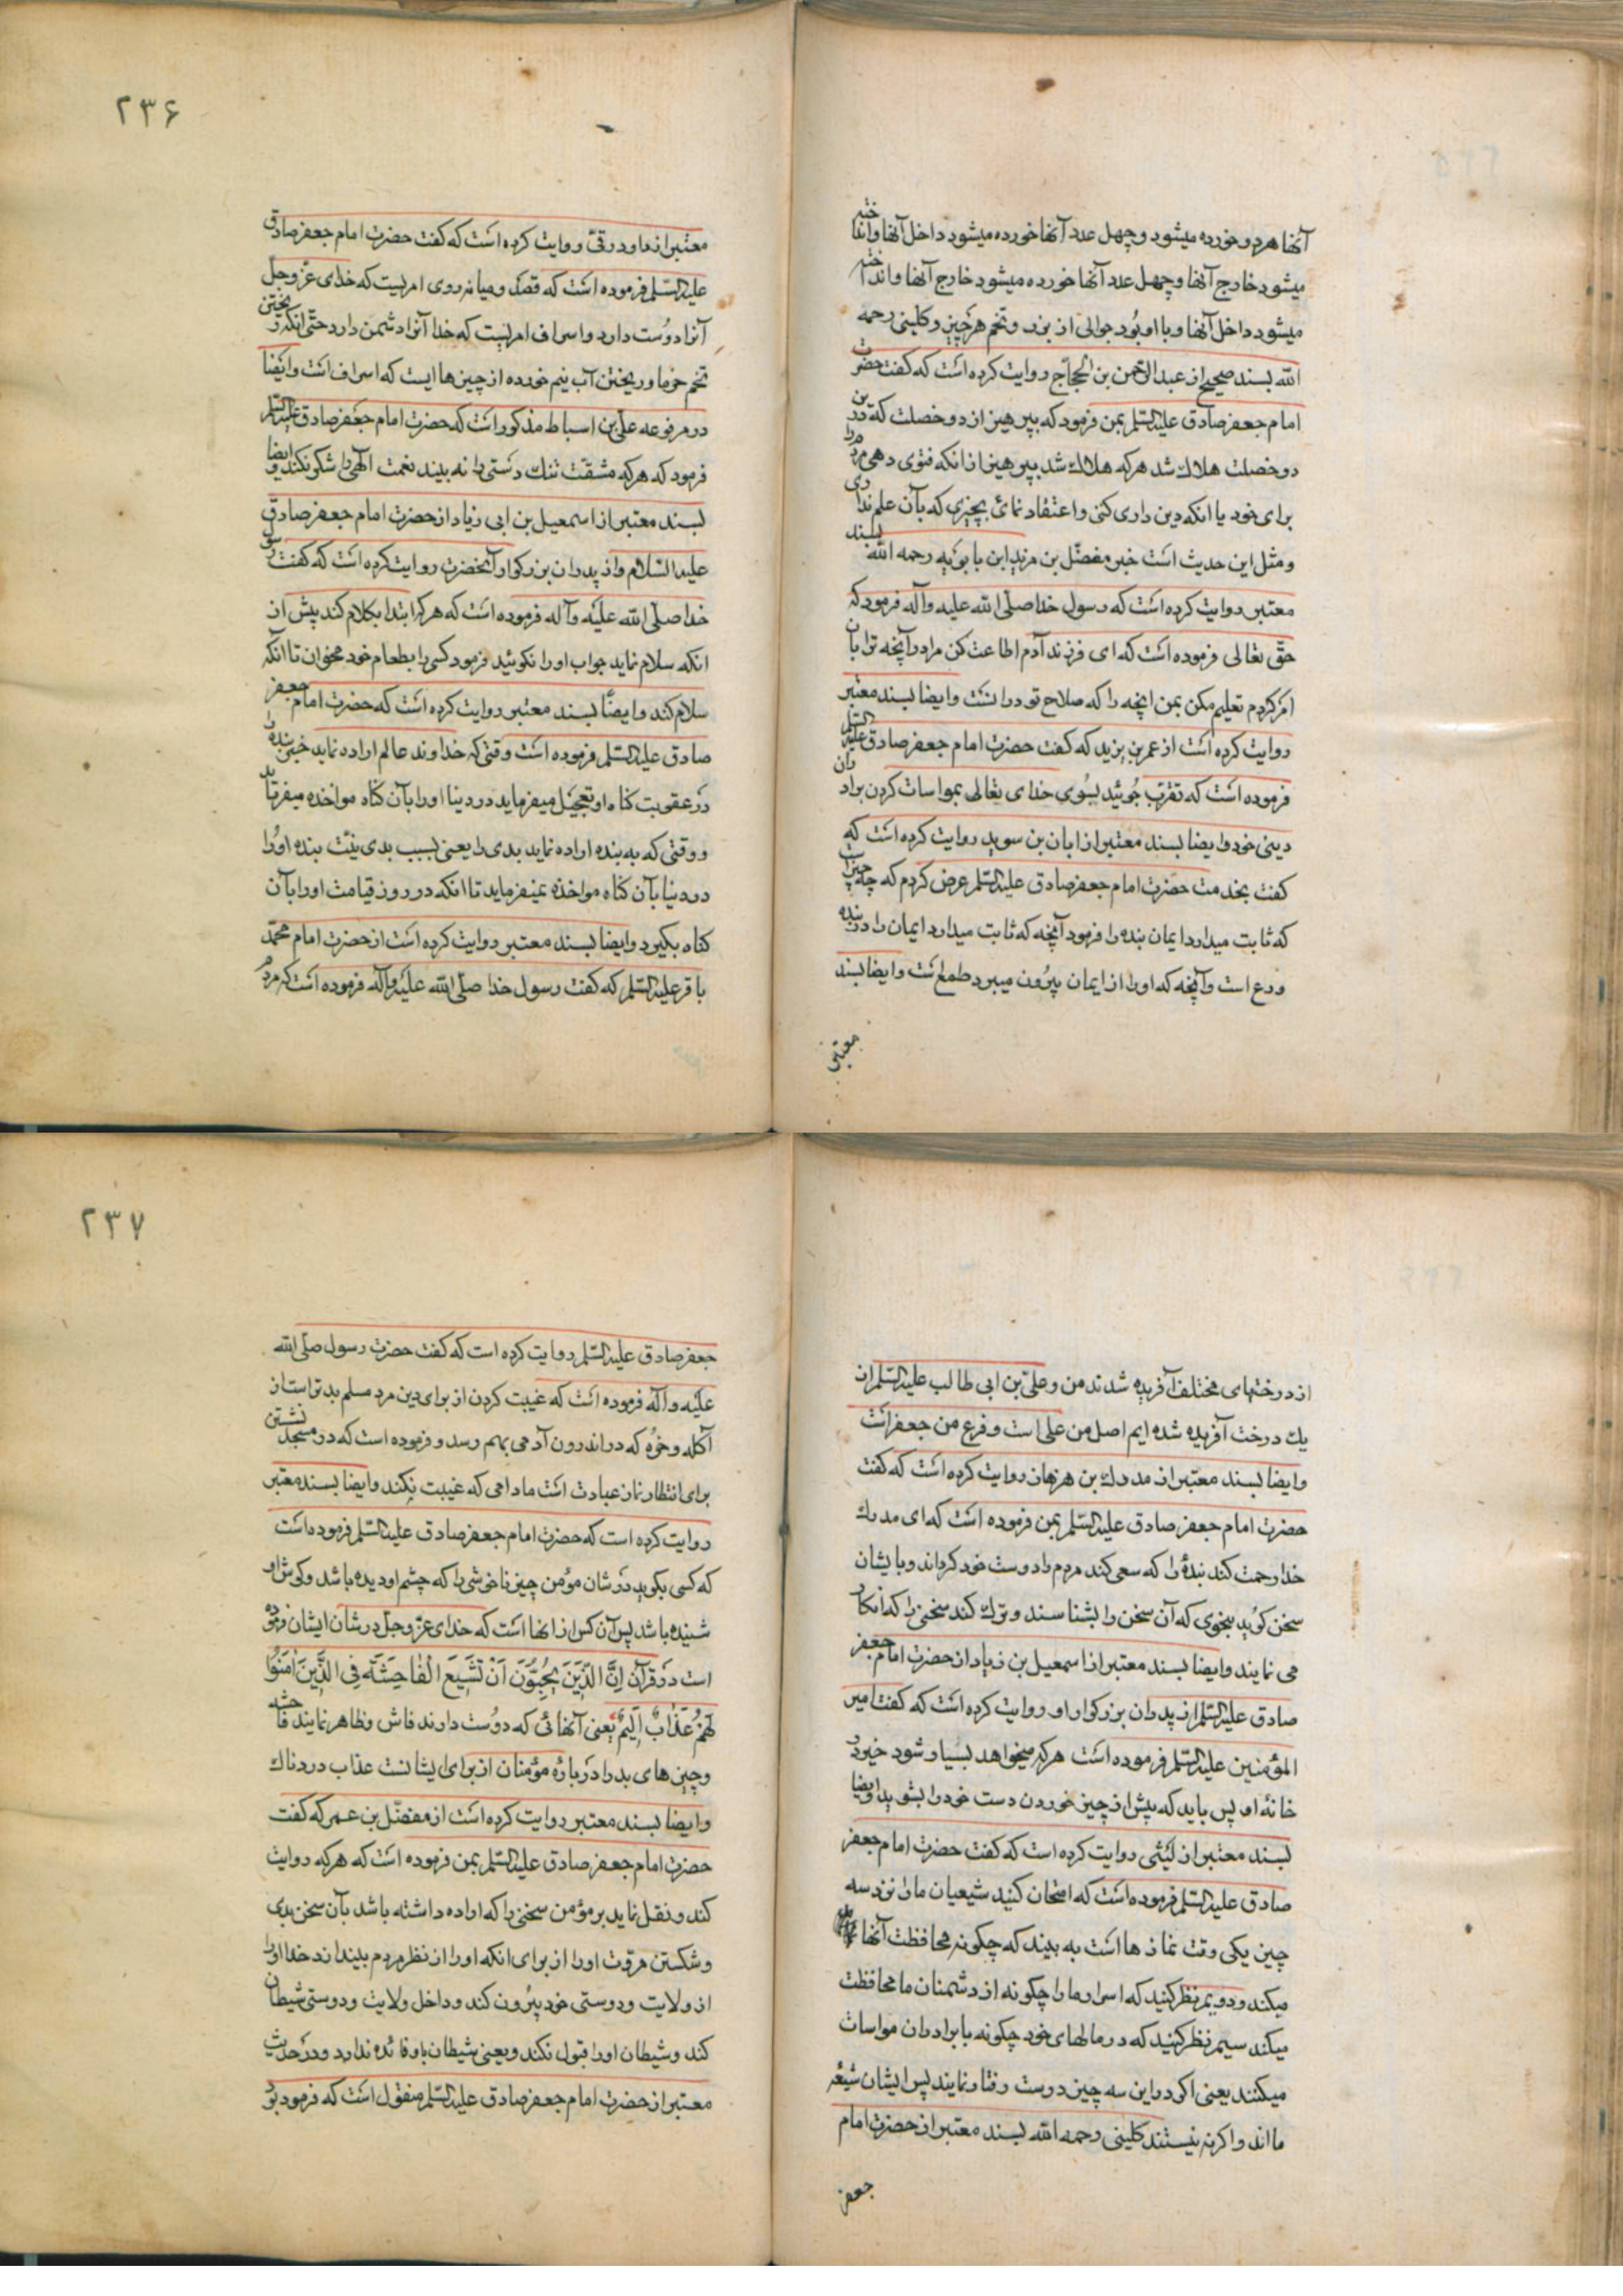 آنها هر دو خورده میشود و چهل عدد آنها خورده میشود داخل آنها و انداخته
میشود خارج آنها و چهل عدد آنها خورده میشود خارج آنها و انداخته
میشود داخل آنها و با او بود جوالی از بزر و تخم هر چیز و کلینی رحمه
الله بسند صحیح از عبد الرحمن بن الحجاج روایت کرده است که گفت حضرت
امام جعفر صادق علیه السلم بمن فرمود که بپرهیز از دو خصلت که در این
دو خصلت هلاک شد هر که هلاک شد بپرهیز از انکه فتوی دهی مردم را
برای خود یا انکه دین داری کنی و اعتقاد نمائی بچیزی که بآن علم نداری
و مثل این حدیث است خبر مفضل بن مزید ابن بابویه رحمه الله بسند
معتبر روایت کرده است که رسول خدا صلی الله علیه و آله فرمود که
حق تعالی فرموده است که ای فرزند آدم اطاعت کن مرا در آنچه ترا بآن
امر کردم تعلیم مکن بمن انچه را که صلاح تو در انست و ایضا بسند معتبر
روایت کرده است از عمر بن یزید که گفت حضرت امام جعفر صادق علیه السلم
فرموده است که تقرب جوئید بسوی خدای تعالی بمواسات کردن برادران
دینی خود و ایضا بسند معتبر از ابان بن سوید روایت کرده است که
گفت بخدمت حضرت امام جعفر صادق علیه السلم عرض کردم که چه چیز است
که ثابت میدارد ایمان بنده را فرمود آنچه که ثابت میدارد ایمان را در بنده
ورع است و آنچه که او را از ایمان بیرون میبرد طمع است و ایضا بسند
معتبر
۲۳۶
معتبر از داود رقی روایت کرده است که گفت حضرت امام جعفر صادق
علیه السلم فرموده است که قصد و میانه روی امریست که خدای عز و جل
آنرا دوست دارد و اسراف امریست که خدا آنرا دشمن دارد حتی انکه ریختن
تخم خرما و ریختن آب نیم خورده از چیزهاایست که اسراف است و ایضا
در مرفوعه علی بن اسباط مذکور است که حضرت امام جعفر صادق علیه السلم
فرمود که هر که مشقت تنک دستی را نه بیند نعمت الهی را شکر نکند و ایضا
بسند معتبر از اسمعیل بن ابی زیاد از حضرت امام جعفر صادق
علیه السلام و از پدران بزرکوار آنحضرت روایت کرده است که گفت رسول
خدا صلی الله علیه و آله فرموده است که هر که ابتدا بکلام کند پیش از
انکه سلام نماید جواب او را نکوئید فرمود کسی را بطعام خود مخوان تا انکه
سلام کند و ایضا بسند معتبر روایت کرده است که حضرت امام جعفر
صادق علیه السلم فرموده است وقتی که خداوند عالم اراده نماید خیر بنده را
در عقوبت کناه او تعجیل میفرماید در دنیا او را بآن کناه مواخذه میفرماید
و وقتی که به بنده اراده نماید بدی را یعنی بسبب بدی نیت بنده او را
در دنیا بآن کناه مواخذه نمیفرماید تا انکه در روز قیامت او را بآن
کناه بگیرد و ایضا بسند معتبر روایت کرده است از حضرت امام محمد
باقر علیه السلم که گفت رسول خدا صلی الله علیه و آله فرموده است که مردم
از درختهای مختلف آفریده شدند من و علی بن ابی طالب علیه السلم از
یک درخت آفریده شده ایم اصل من علی است و فرع من جعفر است
و ایضا بسند معتبر از مدرک بن هزهاز روایت کرده است که گفت
حضرت امام جعفر صادق علیه السلم بمن فرموده است که ای مدرک
خدا رحمت کند بندۀ را که سعی کند مردم را دوست خود کرداند و بایشان
سخن کوید بنحوی که آن سخن را بشناسند و ترک کند سخنی را که انکار
می نمایند و ایضا بسند معتبر از اسمعیل بن زیاد از حضرت امام جعفر
صادق علیه السلم از پدران بزرکوار او روایت کرده است که گفت امیر
المؤمنین علیه السلم فرموده است هر که میخواهد بسیار شود خیر در
خانۀ او پس باید که پیش از چیز خوردن دست خود را بشوید و ایضا
بسند معتبر از لیثی روایت کرده است که گفت حضرت امام جعفر
صادق علیه السلم فرموده است که امتحان کنید شیعیان ما را نزد سه
چیز یکی وقت نمازها است به بیند که چگونه محافظت آنها
میکند و دویم نظر کنید که اسرار ما را چگونه از دشمنان ما محافظت
میکند سیم نظر کنید که در مالهای خود چگونه با برادران مواسات
میکنند یعنی اکر در این سه چیز درست رفتار نمایند پس ایشان شیعه
ما اند و اکر نه نیستند کلینی رحمه الله بسند معتبر از حضرت امام
جعفر
۲۳۷
جعفر صادق علیه السلم روایت کرده است که گفت حضرت رسول صلی الله
علیه و آله فرموده است که غیبت کردن از برای دین مرد مسلم بدتر است از
آکله و خوره که در اندرون آدمی بهم رسد و فرموده است که در مسجد نشستن
برای انتظار نماز عبادت است مادامی که غیبت نکند و ایضا بسند معتبر
روایت کرده است که حضرت امام جعفر صادق علیه السلم فرموده است
که کسی بگوید در شان مؤمن چیز ناخوشی را که چشم او دیده باشد و کوش او
شنیده باشد پس آن کس از انها است که خدای عز و جل در شان ایشان فرموده
است در قرآن اِنَّ الَّذِینَ یُحِبُّونَ اَنْ تَشِیعَ الْفاحِشَةُ فِی الَّذِینَ آمَنُوا
لَهُمْ عَذابٌ اَلِیمٌ یعنی آنهائی که دوست دارند فاش و ظاهر نمایند فاحشه
و چیزهای بد را در بارۀ مؤمنان از برای ایشانست عذاب دردناک
و ایضا بسند معتبر روایت کرده است از مفضل بن عمر که گفت
حضرت امام جعفر صادق علیه السلم بمن فرموده است که هر که روایت
کند و نقل نماید بر مؤمن سخنی را که اراده داشته باشد بآن سخن بدی
و شکستن مروت او را از برای انکه او را از نظر مردم بیندازد خدا او را
از ولایت و دوستی خود بیرون کند و داخل ولایت و دوستی شیطان
کند و شیطان او را قبول نکند و یعنی شیطان باو فائده ندارد و در حدیث
معتبر از حضرت امام جعفر صادق علیه السلم منقول است که فرمود بر